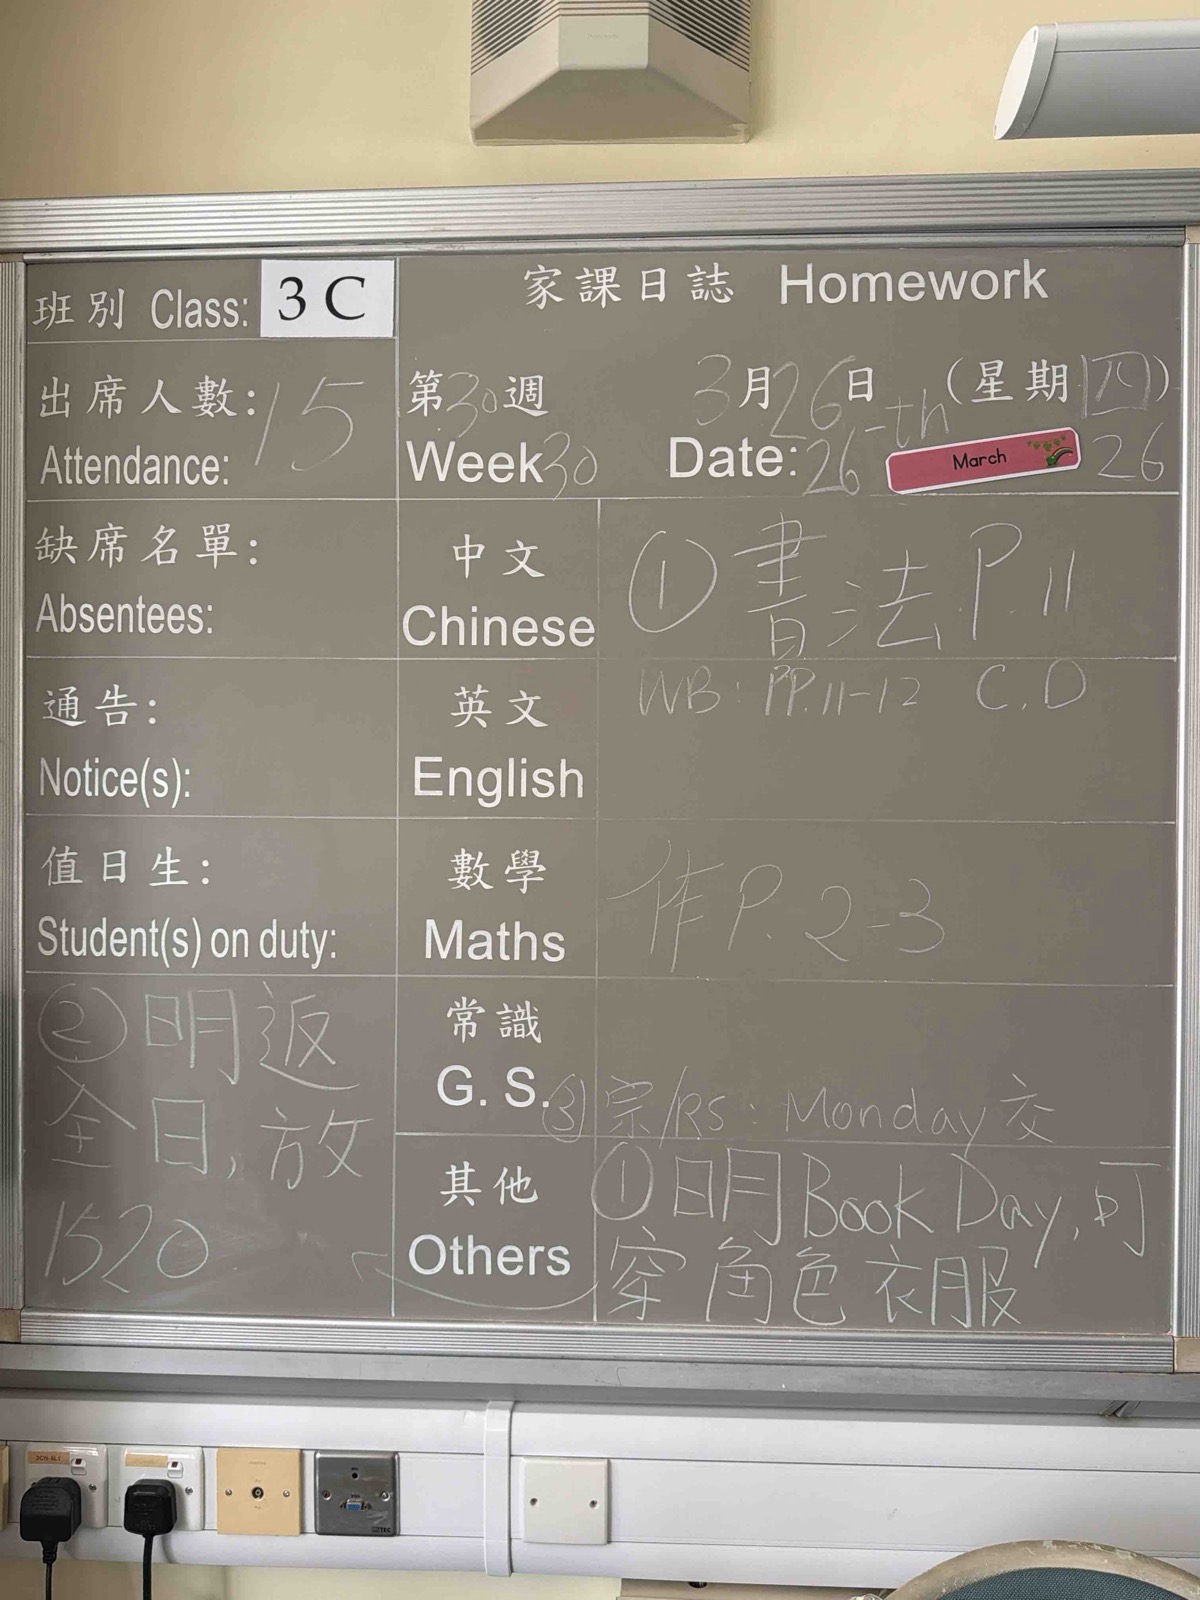 班別 Class: 3 C
家課日誌 Homework
出席人數: 15
Attendance:
第30週 3月26日 (星期四)
Week 30 Date: 26-th March 26
缺席名單:
Absentees:
中文
Chinese
① 書法 P.11
通告:
Notice(s):
英文
English
WB: PP.11-12 C.D
值日生:
Student(s) on duty:
數學
Maths
作 P. 2-3
常識
G. S.
③ 宗/RS: Monday 交
其他
Others
① 明 Book Day, 可
穿角色衣服
② 明返
全日, 放
1520